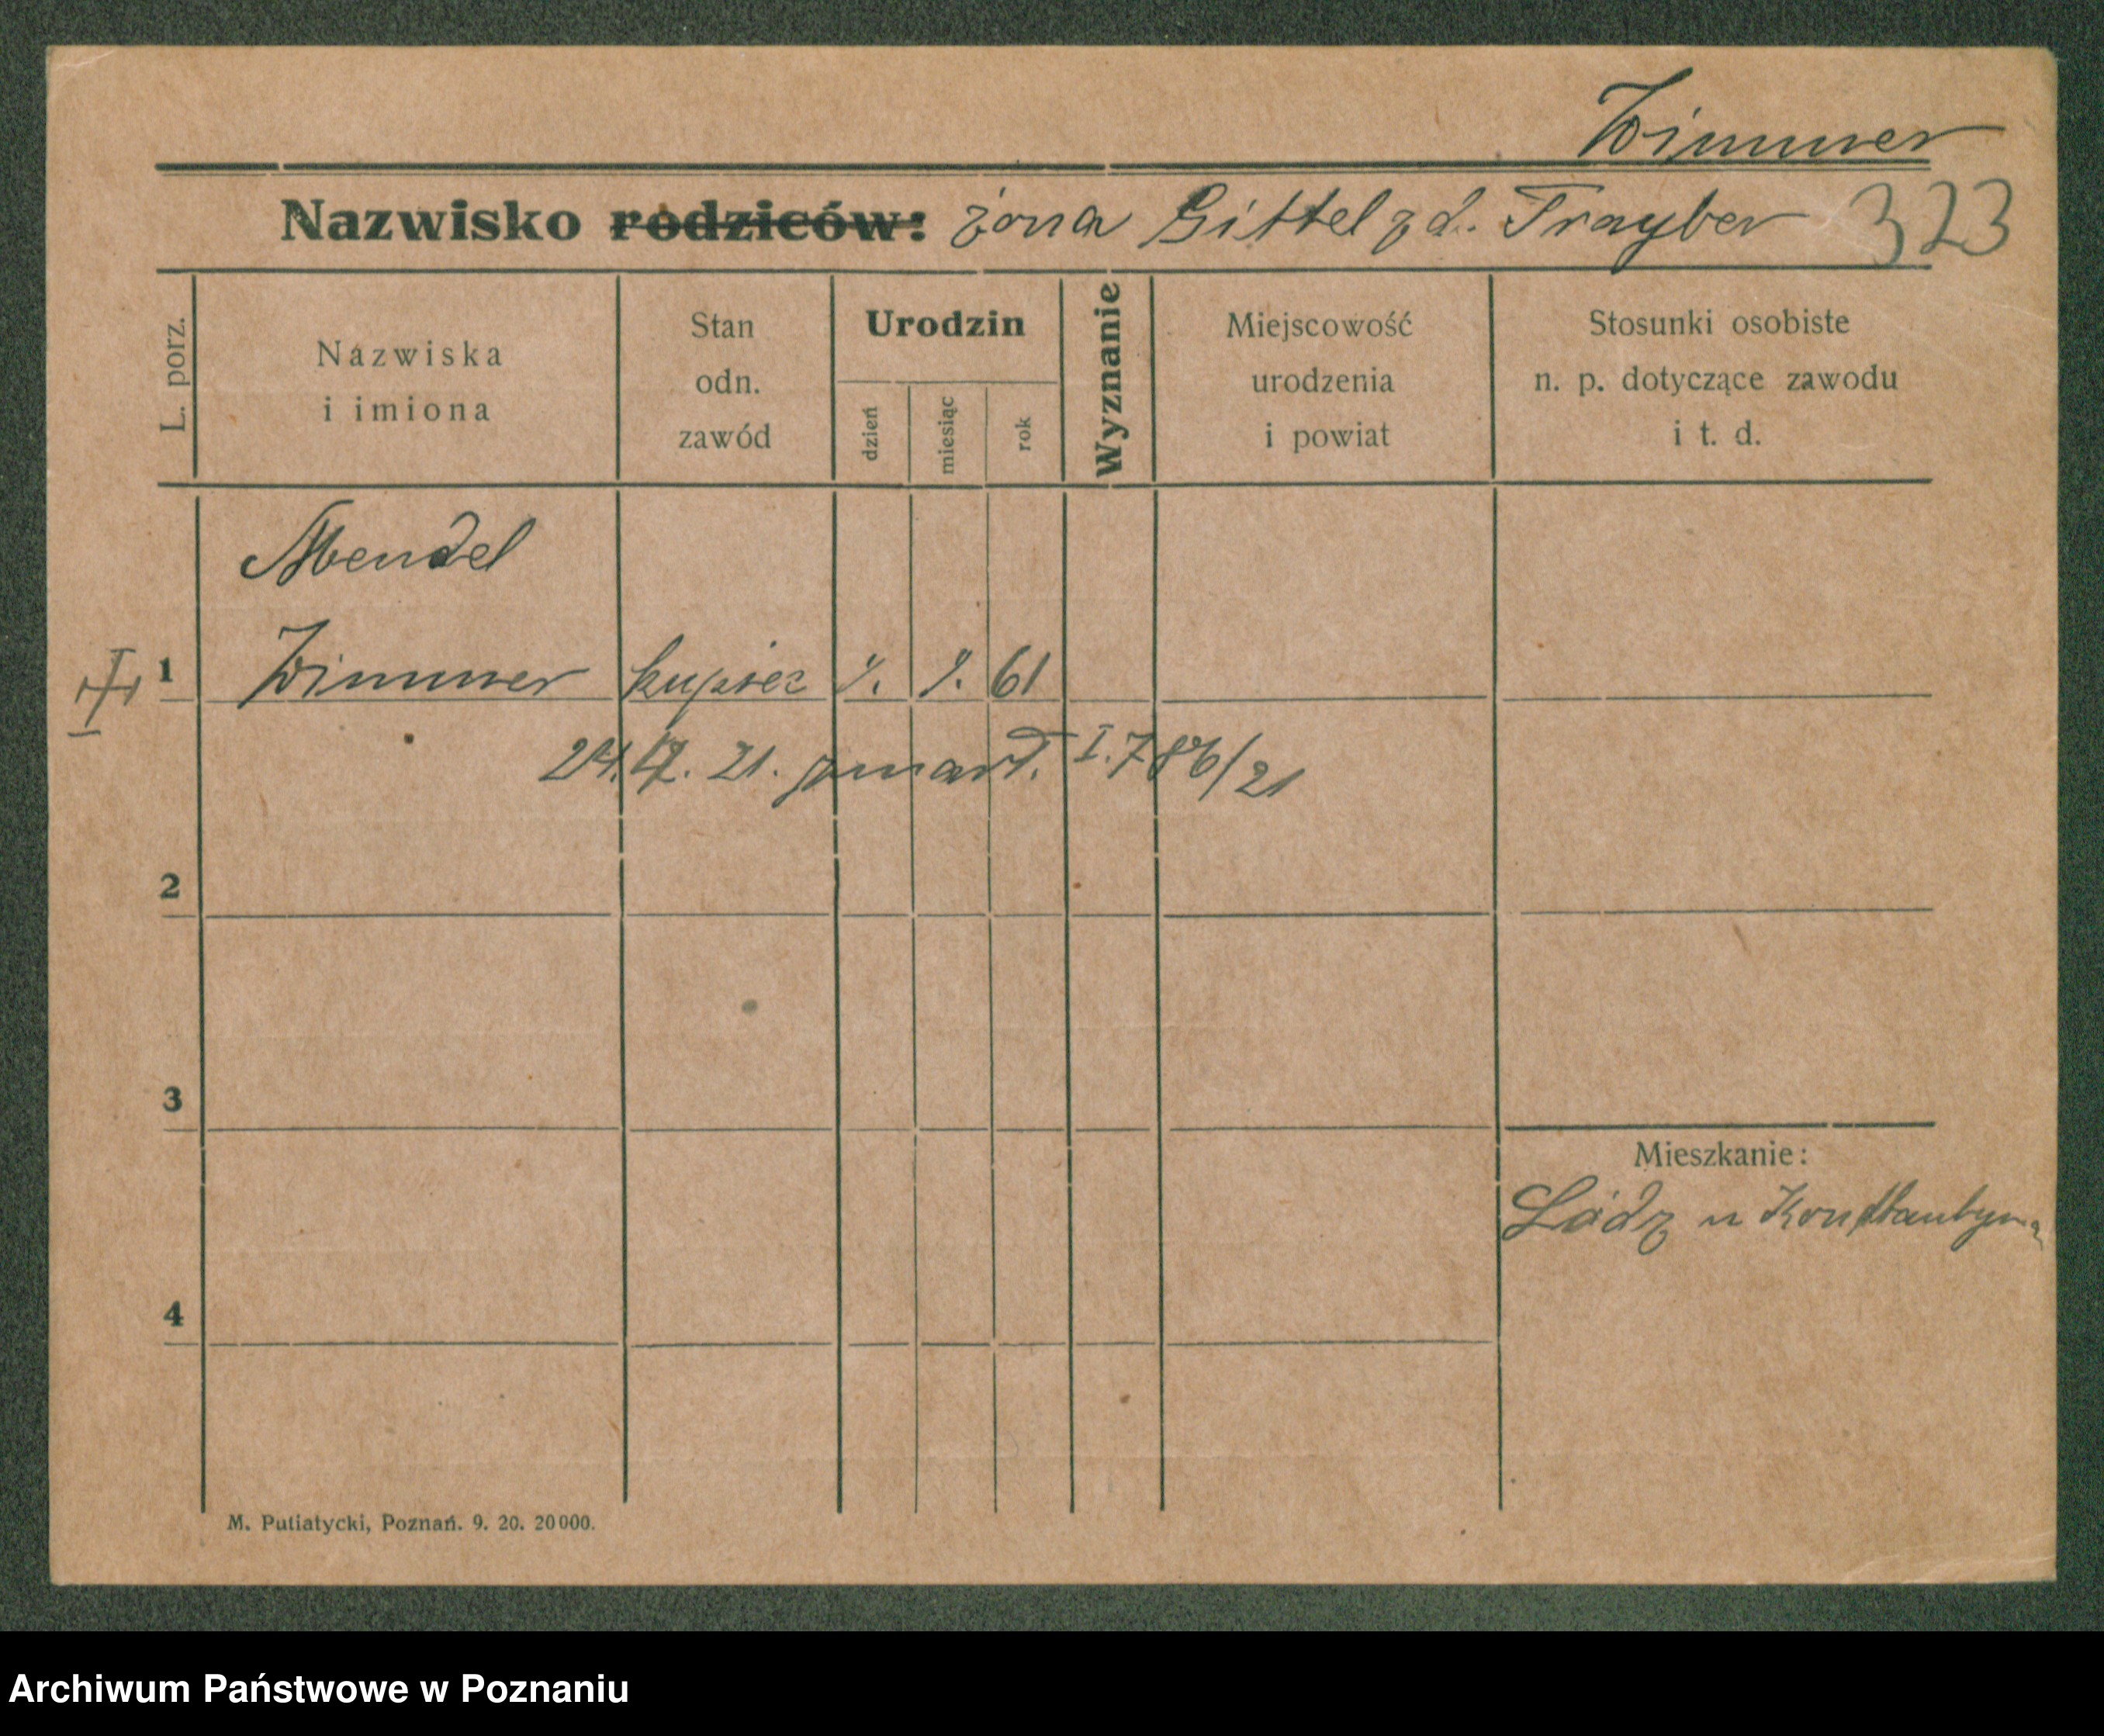 Zimmer
Nazwisko rodziców: żona Gittel zd. Trayber 323
L. porz.
Nazwiska
i imiona
Stan
odn.
zawód
Urodzin
dzień
miesiąc
rok
Wyznanie
Miejscowość
urodzenia
i powiat
Stosunki osobiste
n. p. dotyczące zawodu
i t. d.
Mendel
1 Zimmer kupiec 61
21. zmarł. I. 786/21
2
3
Mieszkanie:
Łódź
4
M. Putiatycki, Poznań. 9. 20. 20000.
Archiwum Państwowe w Poznaniu